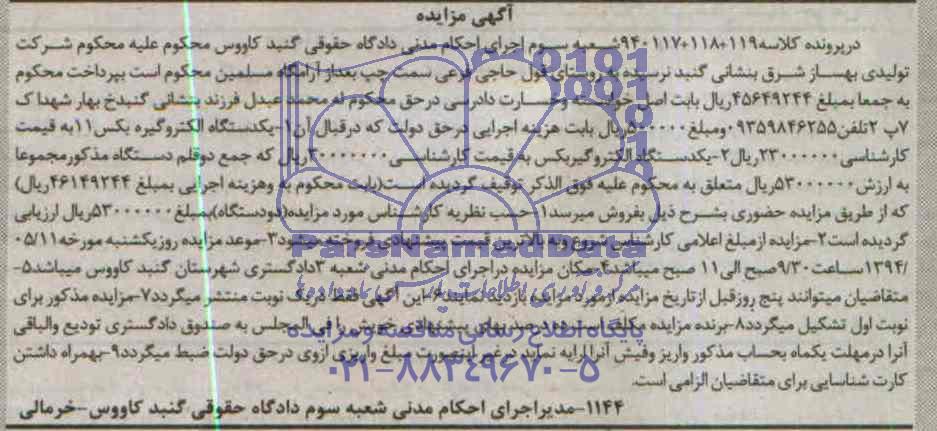 آگهی مزایده
درپرونده کلاسه۱۱۹+۱۱۸+۹۴۰۱۱۷شعبه سوم اجرای احکام مدنی دادگاه حقوقی گنبد کاووس محکوم علیه محکوم شرکت
تولیدی بهساز شرق بنشانی گنبد نرسیده به روستای قول حاجی فرعی سمت چپ بعداز آرامگاه مسلمین محکوم است بپرداخت محکوم
به جمعا بمبلغ ۴۵۶۴۹۲۴۴ریال بابت اصل خواسته وخسارت دادرسی درحق محکوم له محمد عبدل فرزند بنشانی گنبدخ بهار شهدا ک
۷پ ۲تلفن۰۹۳۵۹۸۴۶۲۵۵ومبلغ۵۰۰۰۰۰ریال بابت هزینه اجرایی درحق دولت که درقبال ان۱-یکدستگاه الکتروگیره یکس۱۱به قیمت
کارشناسی۲۳۰۰۰۰۰۰ریال۲-یکدستگاه الکتروگیربکس به قیمت کارشناسی۳۰۰۰۰۰۰۰ریال که جمع دوقلم دستگاه مذکورمجموعا
به ارزش۵۳۰۰۰۰۰۰ریال متعلق به محکوم علیه فوق الذکر توقیف گردیده است(بابت محکوم به وهزینه اجرایی بمبلغ ۴۶۱۴۹۲۴۴ریال)
که از طریق مزایده حضوری بشرح ذیل بفروش میرسد۱-حسب نظریه کارشناس مورد مزایده(دودستگاه)بمبلغ۵۳۰۰۰۰۰۰ریال ارزیابی
گردیده است۲-مزایده ازمبلغ اعلامی کارشناس شروع وبه بالاترین قیمت پیشنهادی فروخته میشود۳-موعد مزایده روزیکشنبه مورخه۰۵/۱۱
/۱۳۹۴ساعت۹/۳۰صبح الی۱۱ صبح میباشد۴-مکان مزایده دراجرای احکام مدنی شعبه ۳دادگستری شهرستان گنبد کاووس میباشد۵-
متقاضیان میتوانند پنج روزقبل ازتاریخ مزایده ازمورد مزایده بازدید نمایند۶-این آگهی فقط دریک نوبت منتشر میگردد۷-مزایده مذکور برای
نوبت اول تشکیل میگردد۸-برنده مزایده مکلف است ده درصد بهای پیشنهادی خویش را فی المجلس به صندوق دادگستری تودیع والباقی
آنرا درمهلت یکماه بحساب مذکور واریز وفیش آنرا ارایه نماید درغیر اینصورت مبلغ واریزی ازوی درحق دولت ضبط میگردد۹-بهمراه داشتن
کارت شناسایی برای متقاضیان الزامی است.
۱۱۴۴-مدیراجرای احکام مدنی شعبه سوم دادگاه حقوقی گنبد کاووس-خرمالی
ParsNamadData
پایگاه اطلاع رسانی مناقصه و مزایده
۰۲۱-۸۸۳۴۹۶۷۰-۵